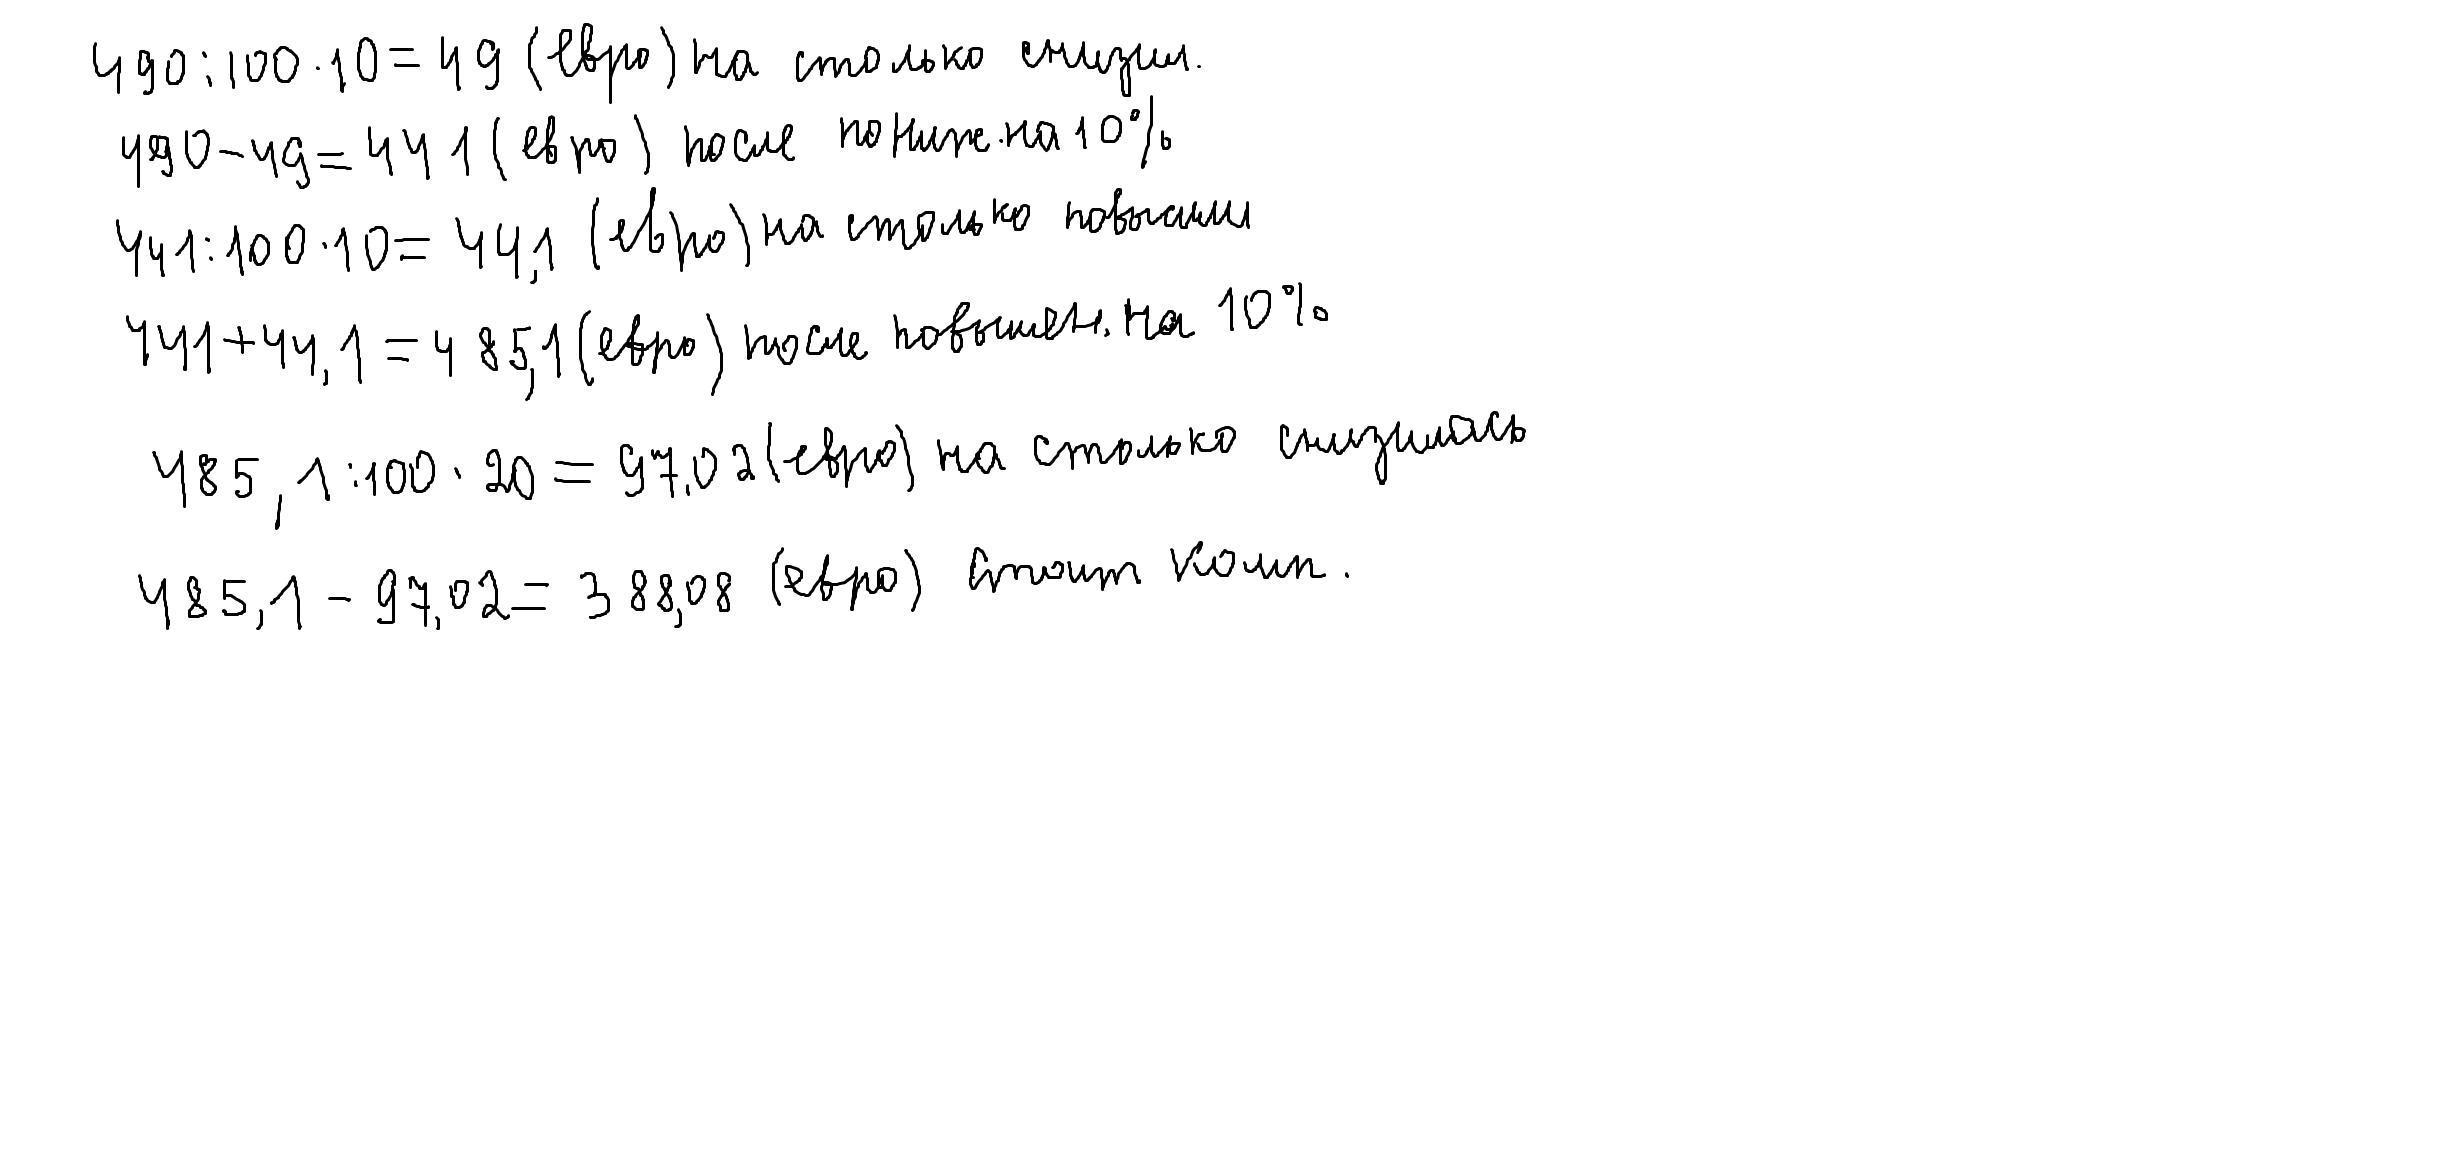 490:100·10=49 (евро) на столько снизил.
490-49=441 (евро) после пониж. на 10%
441:100·10=44,1 (евро) на столько повысили
441+44,1=485,1 (евро) после повышен. на 10%
485,1:100·20=97,02 (евро) на столько снизилась
485,1-97,02=388,08 (евро) стоит комп.